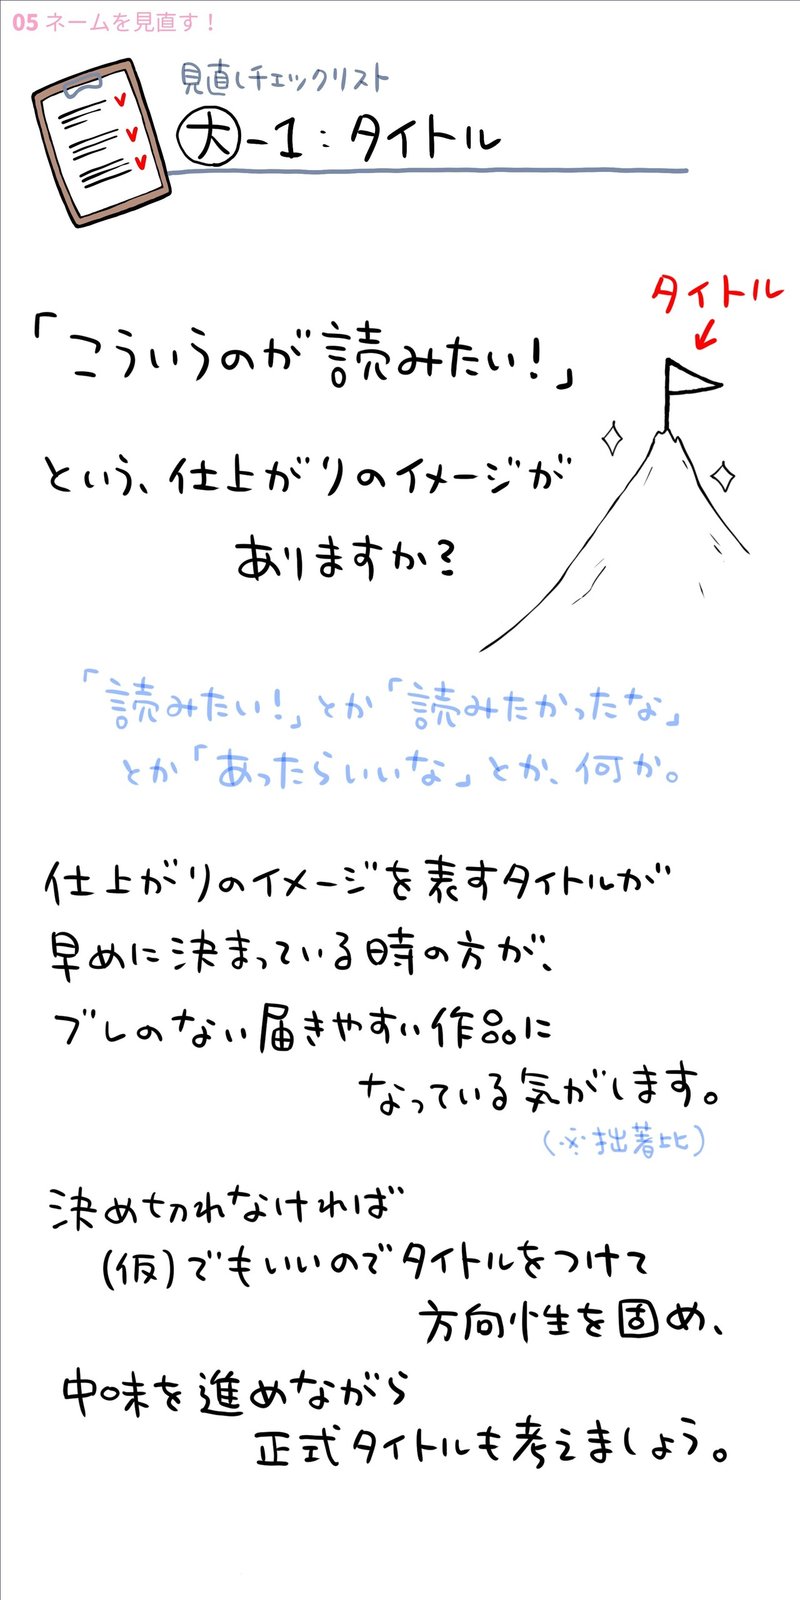 05 ネームを見直す！
見直しチェックリスト
大-1：タイトル
タイトル
「こういうのが読みたい！」
という、仕上がりのイメージが
ありますか？
「読みたい！」とか「読みたかったな」
とか「あったらいいな」とか、何か。
仕上がりのイメージを表すタイトルが
早めに決まっている時の方が、
ブレのない届きやすい作品に
なっている気がします。
（※拙著比）
決め切れなければ
(仮)でもいいのでタイトルをつけて
方向性を固め、
中味を進めながら
正式タイトルも考えましょう。